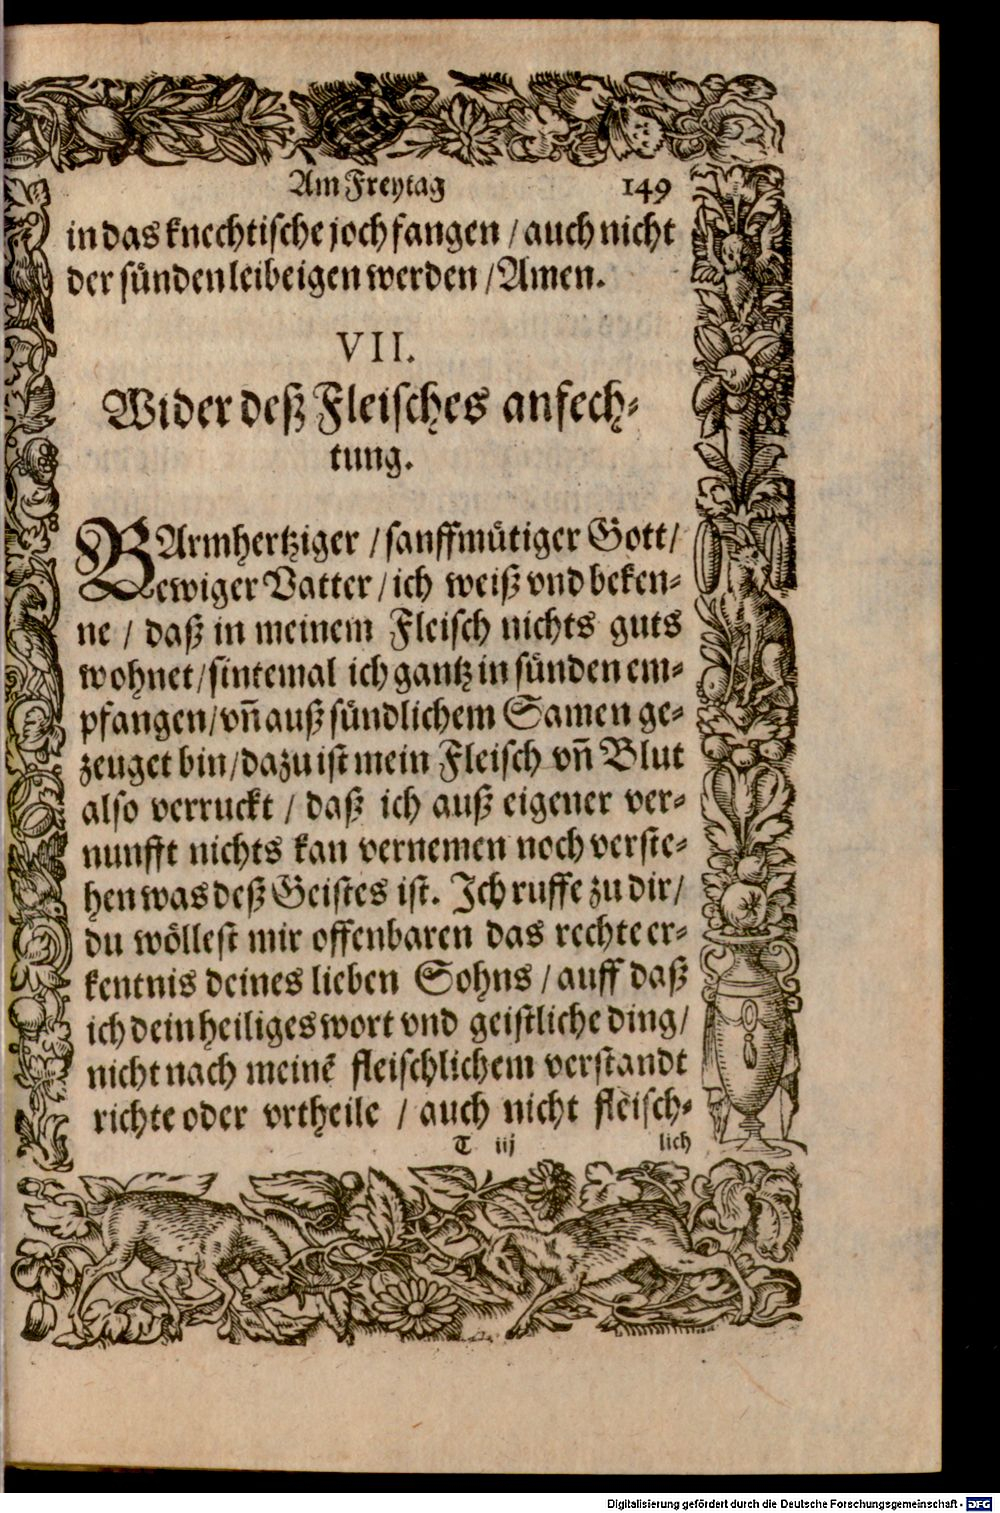 Am Freytag 149
in das knechtische joch fangen / auch nicht
der sünden leibeigen werden / Amen.
VII.
Wider deß Fleisches anfech⸗
tung.
BArmhertziger / sanffmütiger Gott /
ewiger Vatter / ich weiß vnd beken⸗
ne / daß in meinem Fleisch nichts guts
wohnet / sintemal ich gantz in sünden em⸗
pfangen / vñ auß sündlichem Samen ge⸗
zeuget bin / dazu ist mein Fleisch vñ Blut
also verruckt / daß ich auß eigener ver⸗
nunfft nichts kan vernemen noch verste⸗
hen was deß Geistes ist. Ich ruffe zu dir /
du wöllest mir offenbaren das rechte er⸗
kentnis deines lieben Sohns / auff daß
ich dein heiliges wort vnd geistliche ding /
nicht nach meinẽ fleischlichem verstandt
richte oder vrtheile / auch nicht fleisch⸗
T iij lich
Digitalisierung gefördert durch die Deutsche Forschungsgemeinschaft - DFG